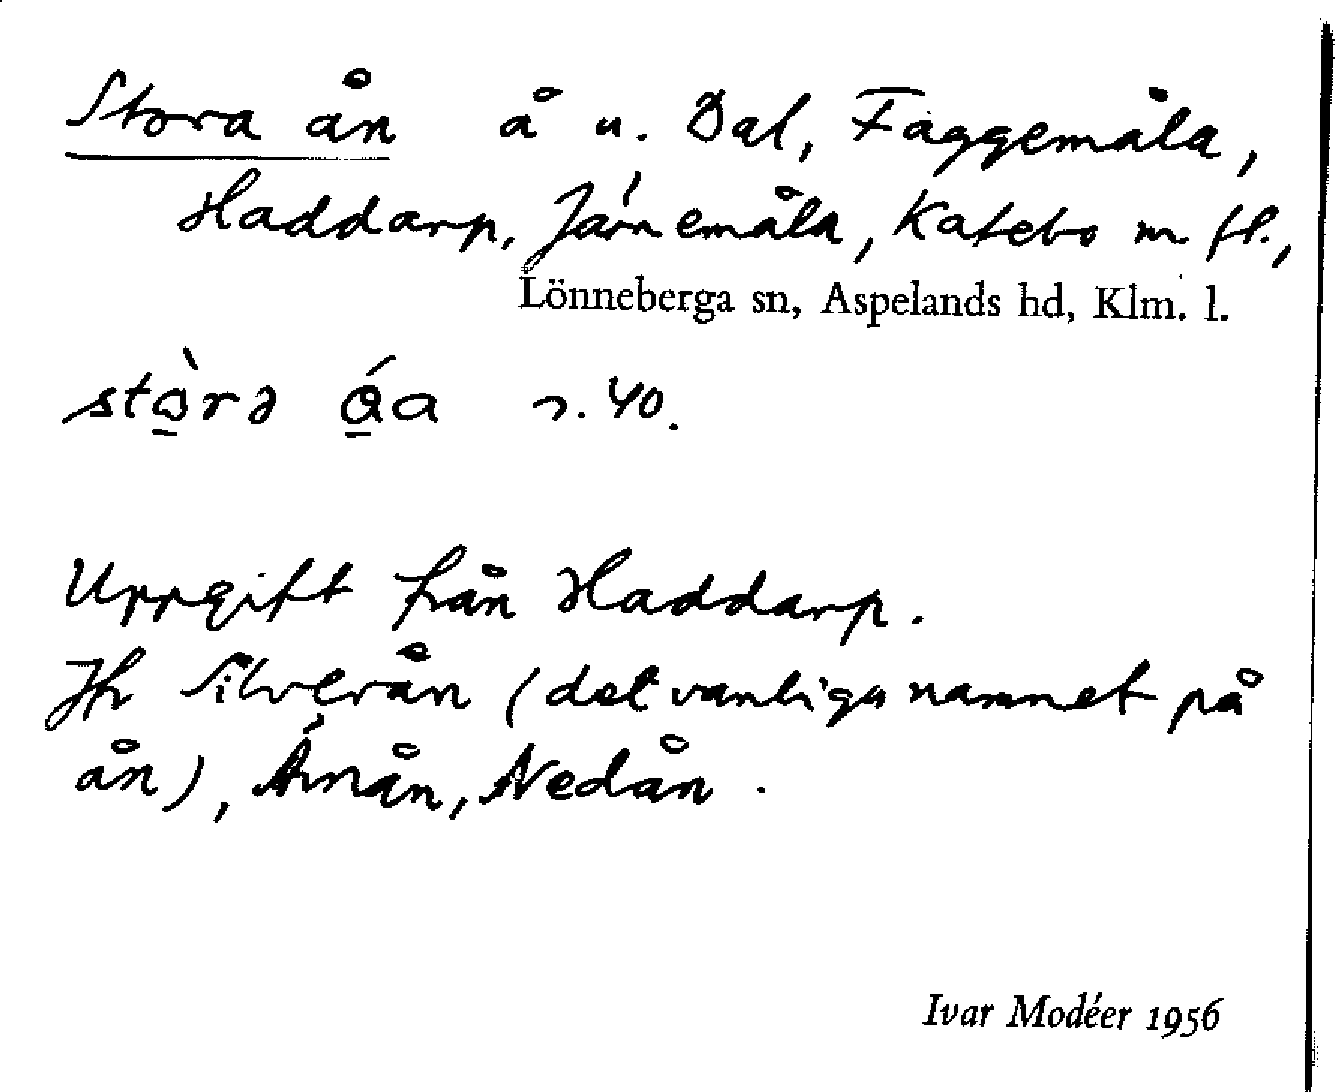 Stora ån å u. Dal, Faggemåla,
Haddarp, Järnemåla, Katebo m fl.,
Lönneberga sn, Aspelands hd, Klm. l.
stò̱rə ɑ̱́a r. 40.
Uppgift från Haddarp.
Jfr Silverån (det vanliga namnet på
ån), Åmån, Nedån.
Ivar Modéer 1956